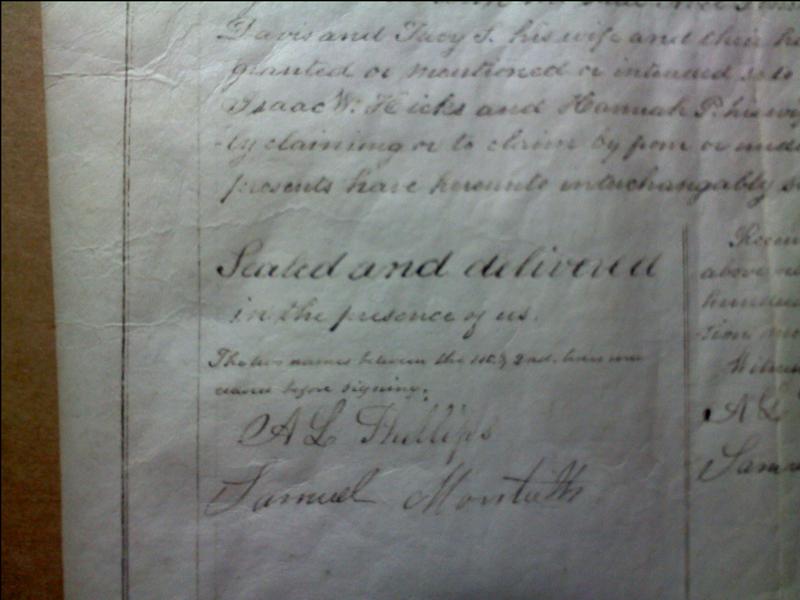 Davis and Lucy S. his wife and their
granted or mentioned or intended so to
Isaac W. Hicks and Hannah P. his
-ly claiming or to claim by from or
presents have hereunto interchangably
Sealed and delivered
in the presence of us.
The two names between the 1st & 2nd lines were
erased before signing.
A L Phillips
Samuel Monteith
above
hundred
-sion
Witness
A L